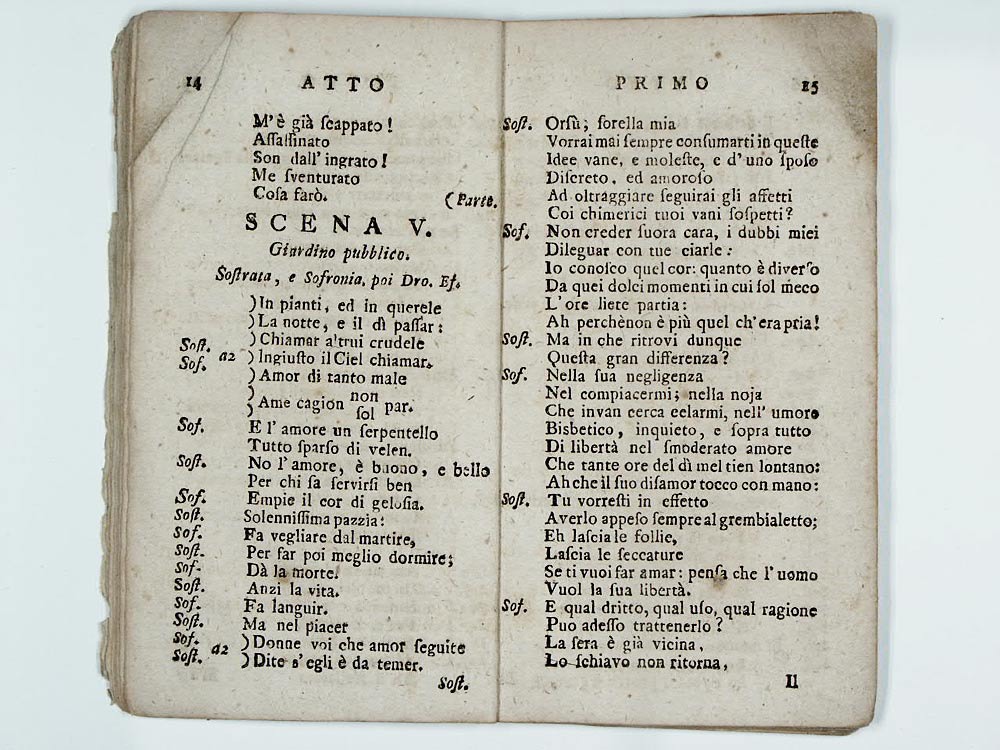 14 ATTO
M'è già ſcappato!
Aſſaſſinato
Son dall'ingrato!
Me ſventurato
Coſa farò. (Parte.
SCENA V.
Giardino pubblico.
Soſtrata, e Sofronia, poi Dro. Ef.
)In pianti, ed in querele
)La notte, e il dì paſſar:
Soſt. )Chiamar a'trui crudele
Sof. a2 )Ingiuſto il Ciel chiamar.
)Amor di tanto male
) non
)Ame cagion ſol par.
Sof. E l'amore un ſerpentello
Tutto ſparſo di velen.
Soſt. No l'amore, è buono, e bello
Per chi ſa ſervirſi ben
Sof. Empie il cor di geloſia.
Soſt. Solenniſſima pazzia:
Sof. Fa vegliare dal martire,
Soſt. Per far poi meglio dormire;
Sof. Dà la morte.
Soſt. Anzi la vita.
Sof. Fa languir.
Soſt. Ma nel piacer
Sof. a2 )Donne voi che amor ſeguite
Soſt. )Dite s'egli è da temer.
Soſt.
PRIMO 15
Soſt. Orſù; ſorella mia
Vorrai mai ſempre conſumarti in queſte
Idee vane, e moleſte, e d'uno ſpoſo
Diſcreto, ed amoroſo
Ad oltraggiare ſeguirai gli affetti
Coi chimerici tuoi vani ſoſpetti?
Sof. Non creder ſuora cara, i dubbi miei
Dileguar con tue ciarle:
Io conoſco quel cor: quanto è diverſo
Da quei dolci momenti in cui ſol meco
L'ore liete partia:
Ah perchènon è più quel ch'era pria!
Soſt. Ma in che ritrovi dunque
Queſta gran differenza?
Sof. Nella ſua negligenza
Nel compiacermi; nella noja
Che invan cerca eelarmi, nell' umore
Bisbetico, inquieto, e ſopra tutto
Di libertà nel ſmoderato amore
Che tante ore del dì mel tien lontano:
Ah che il ſuo diſamor tocco con mano:
Soſt. Tu vorreſti in effetto
Averlo appeſo ſempre al grembialetto;
Eh laſcia le follie,
Laſcia le ſeccature
Se ti vuoi far amar: penſa che l'uomo
Vuol la ſua libertà.
Sof. E qual dritto, qual uſo, qual ragione
Puo adeſſo trattenerlo?
La ſera è già vicina,
Lo ſchiavo non ritorna,
Il